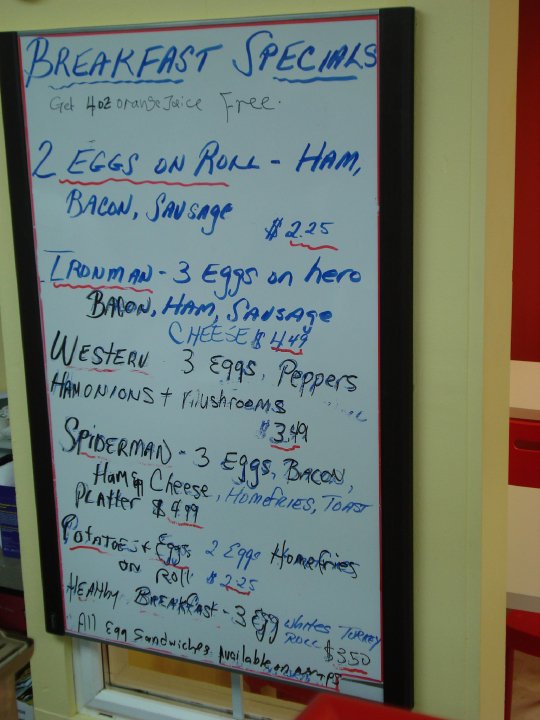 BREAKFAST SPECIALS
Get 4oz orange Juice Free.
2 EGGS ON ROLL - HAM,
BACON, SAUSAGE
$2.25
IRONMAN - 3 Eggs on hero
BACON, HAM, SAUSAGE
CHEESE $4.49
WESTERN 3 Eggs, Peppers
HAM ONIONS + Mushrooms
$3.49
SPIDERMAN - 3 Eggs, BACON,
Ham Cheese, HOMEFRIES, TOAST
Platter $4.99
POTATOES + Eggs 2 Eggs Homefries
ON Roll $2.25
HEAlthy BREAKFAST - 3 Egg WHITES TURKEY
ROLL $3.50
All Egg Sandwiches Available on